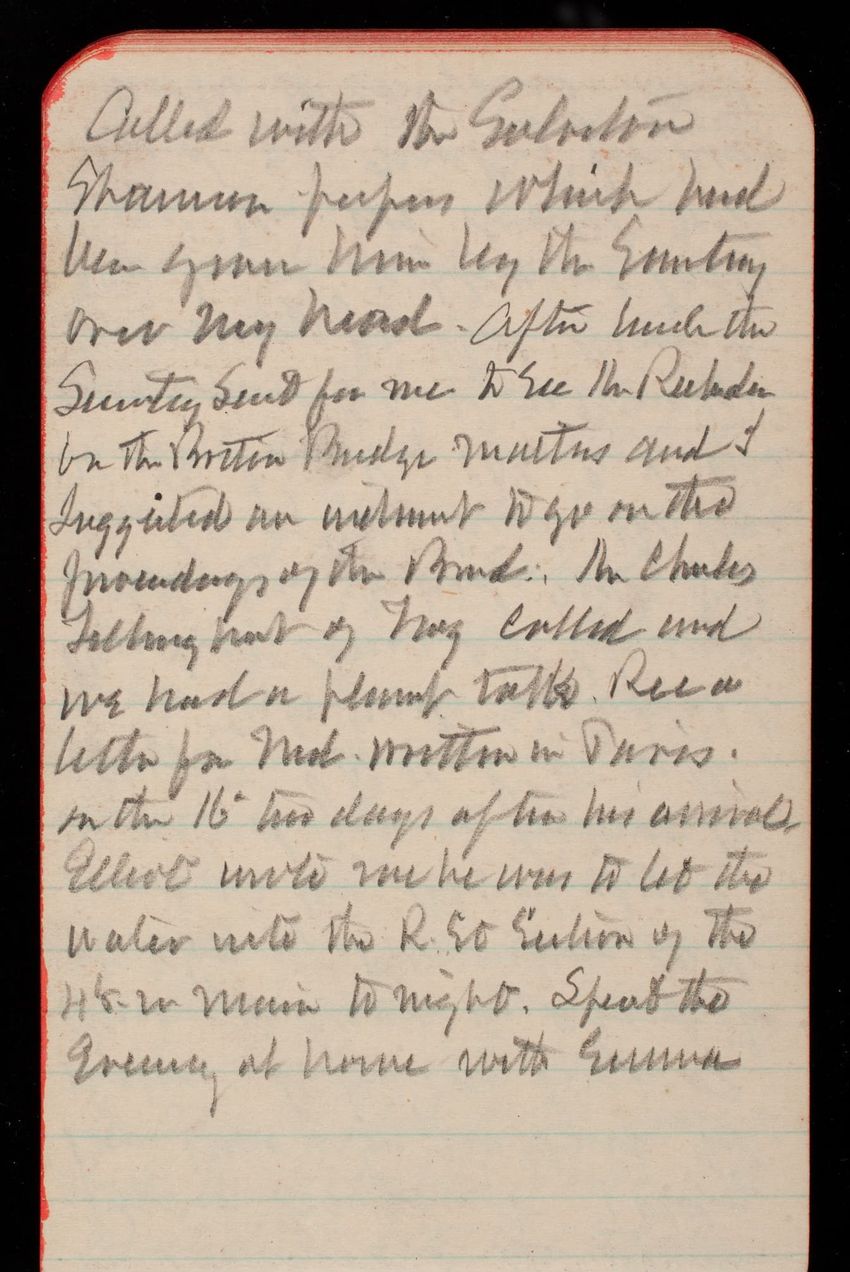 Called with the Galveston
Shannon papers which had
been given him by the Secretary
over my head. After lunch the
Secretary sent for me to see the
on the Boston Bridge matters and I
suggested an to go on the
proceedings of the Board. Mr Charles
of Troy called and
we had a pleasant talk. Rec a
letter from Ned written in Paris.
on the 16" two days after his arrival.
Elliot wrote me he was to let the
water into the R. St Section of the
48 in main to night. Spent the
Evening at home with Emma